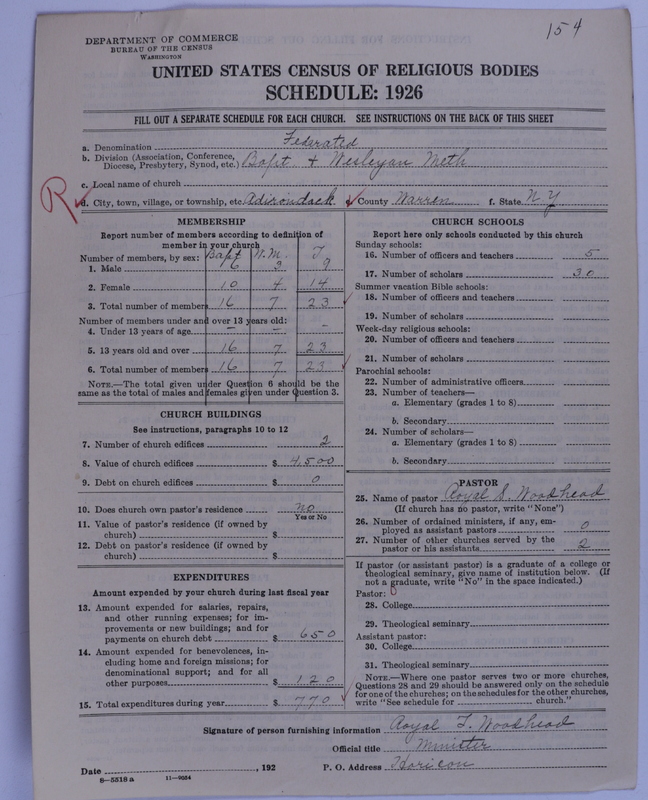 154
DEPARTMENT OF COMMERCE
BUREAU OF THE CENSUS
WASHINGTON
UNITED STATES CENSUS OF RELIGIOUS BODIES
SCHEDULE: 1926
FILL OUT A SEPARATE SCHEDULE FOR EACH CHURCH. SEE INSTRUCTIONS ON THE BACK OF THIS SHEET
a. Denomination Federated
b. Division (Association, Conference, Diocese, Presbytery, Synod, etc.) Bapt + Wesleyan Meth
c. Local name of church
R
d. City, town, village, or township, etc. Adirondack e. County Warren f. State N Y
MEMBERSHIP
Report number of members according to definition of
member in your church
Number of members, by sex: Bapt W.M. T
1. Male 6 3 9
2. Female 10 4 14
3. Total number of members 16 7 23
Number of members under and over 13 years old:
4. Under 13 years of age – – –
5. 13 years old and over 16 7 23
6. Total number of members 16 7 23
NOTE.—The total given under Question 6 should be the
same as the total of males and females given under Question 3.
CHURCH BUILDINGS
See instructions, paragraphs 10 to 12
7. Number of church edifices 2
8. Value of church edifices $ 4500
9. Debt on church edifices $ 0
10. Does church own pastor's residence no
Yes or No
11. Value of pastor's residence (if owned by
church) $
12. Debt on pastor's residence (if owned by
church) $
EXPENDITURES
Amount expended by your church during last fiscal year
13. Amount expended for salaries, repairs,
and other running expenses; for im-
provements or new buildings; and for
payments on church debt $ 650
14. Amount expended for benevolences, in-
cluding home and foreign missions; for
denominational support; and for all
other purposes $ 120
15. Total expenditures during year $ 770
CHURCH SCHOOLS
Report here only schools conducted by this church
Sunday schools:
16. Number of officers and teachers 5
17. Number of scholars 30
Summer vacation Bible schools:
18. Number of officers and teachers
19. Number of scholars
Week-day religious schools:
20. Number of officers and teachers
21. Number of scholars
Parochial schools:
22. Number of administrative officers
23. Number of teachers—
a. Elementary (grades 1 to 8)
b. Secondary
24. Number of scholars—
a. Elementary (grades 1 to 8)
b. Secondary
PASTOR
25. Name of pastor Royal S. Woodhead
(If church has no pastor, write "None")
26. Number of ordained ministers, if any, em-
ployed as assistant pastors 0
27. Number of other churches served by the
pastor or his assistants 2
If pastor (or assistant pastor) is a graduate of a college or
theological seminary, give name of institution below. (If
not a graduate, write "No" in the space indicated.)
Pastor: 0
28. College
29. Theological seminary
Assistant pastor:
30. College
31. Theological seminary
NOTE.—Where one pastor serves two or more churches,
Questions 28 and 29 should be answered only on the schedule
for one of the churches; on the schedules for the other churches,
write "See schedule for church."
Signature of person furnishing information Royal T. Woodhead
Official title Minister
Date , 192 P. O. Address Horicon
8—5518 a 11—9054